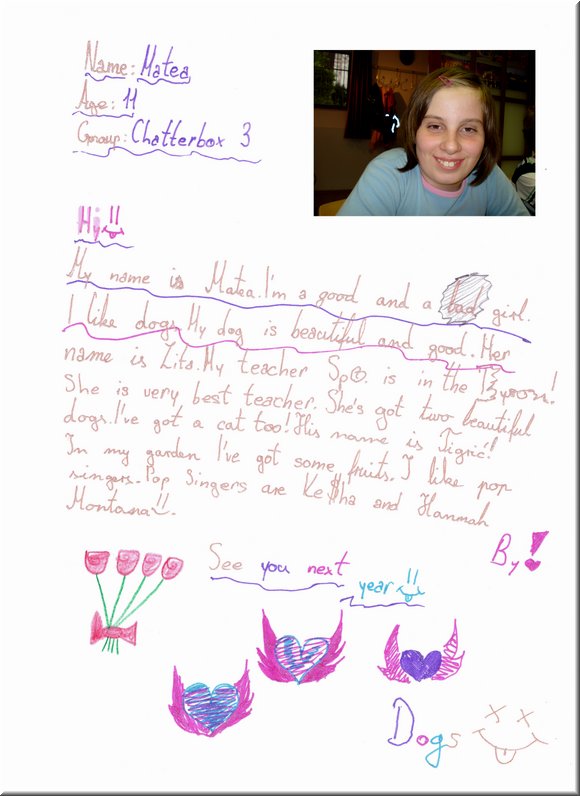 Name: Matea
Age: 11
Group: Chatterbox 3
Hy
My name is Matea. I'm a good and a bad girl.
I like dogs. My dog is beautiful and good. Her
name is Zita. My teacher is in the
She is very best teacher. She's got two beautiful
dogs. I've got a cat too! His name is Tigrić!
In my garden I've got some fruits. I like pop
singers. Pop Singers are Ke$ha and Hannah
Montana!!
By!
See you next
year!!
Dogs